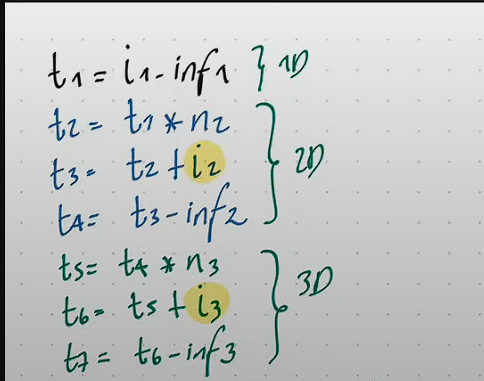 t1 = i1 - inf1 } 1D
t2 = t1 * n2
t3 = t2 + i2 } 2D
t4 = t3 - inf2
t5 = t4 * n3
t6 = t5 + i3 } 3D
t7 = t6 - inf3